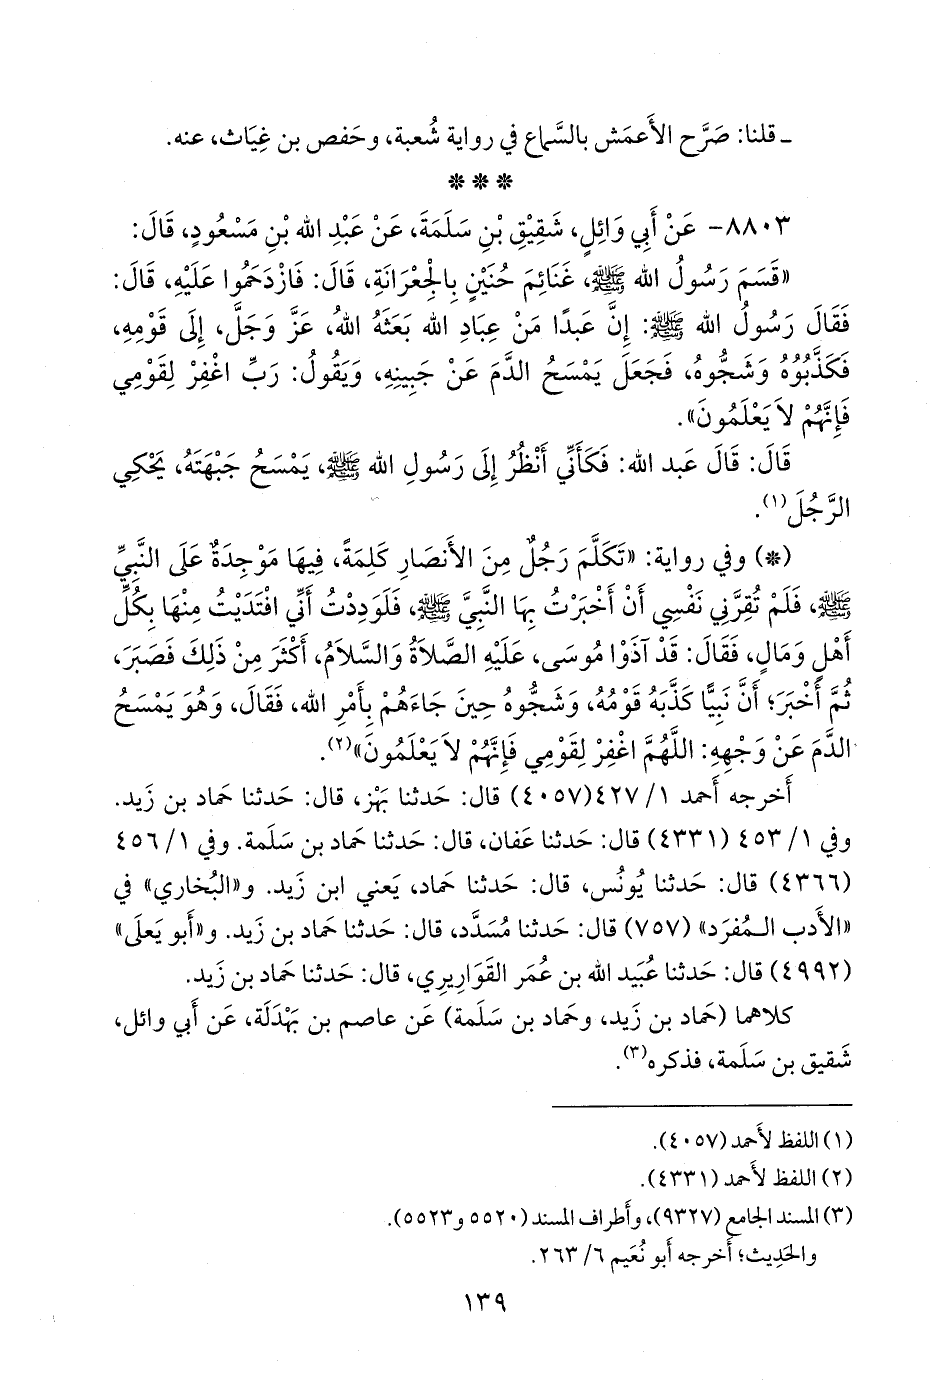 ـ قلنا: صَرَّح الأَعمَش بالسَّماع في رواية شُعبة، وحَفص بن غِيَاث، عنه.
* * *
٨٨٠٣- عَنْ أَبِي وَائِلٍ، شَقِيْقِ بْنِ سَلَمَةَ، عَنْ عَبْدِ الله بْنِ مَسْعُودٍ، قَالَ:
«قَسَمَ رَسُولُ الله ﷺ، غَنَائِمَ حُنَيْنٍ بِالْجِعْرَانَةِ، قَالَ: فَازْدَحَمُوا عَلَيْهِ، قَالَ:
فَقَالَ رَسُولُ الله ﷺ: إِنَّ عَبْدًا مَنْ عِبَادِ الله بَعَثَهُ اللهُ، عَزَّ وَجَلَّ، إِلَى قَوْمِهِ،
فَكَذَّبُوُهُ وَشَجُّوهُ، فَجَعَلَ يَمْسَحُ الدَّمَ عَنْ جَبِينِهِ، وَيَقُولُ: رَبِّ اغْفِرْ لِقَوْمِي
فَإِنَّهُمْ لاَ يَعْلَمُونَ».
قَالَ: قَالَ عَبد الله: فَكَأَنِّي أَنْظُرُ إِلَى رَسُولِ الله ﷺ، يَمْسَحُ جَبْهَتَهُ، يَحْكِي
الرَّجُلَ(١).
(*) وفي رواية: «تَكَلَّمَ رَجُلٌ مِنَ الأَنصَارِ كَلِمَةً، فِيهَا مَوْجِدَةٌ عَلَى النَّبِيِّ
ﷺ، فَلَمْ تُقِرَّنِي نَفْسِي أَنْ أَخْبَرْتُ بِهَا النَّبِيَّ ﷺ، فَلَوَدِدْتُ أَنِّي افْتَدَيْتُ مِنْهَا بِكُلِّ
أَهْلٍ وَمَالٍ، فَقَالَ: قَدْ آذَوْا مُوسَى، عَلَيْهِ الصَّلاَةُ وَالسَّلاَمُ، أَكْثَرَ مِنْ ذَلِكَ فَصَبَرَ،
ثُمَّ أَخْبَرَ؛ أَنَّ نَبِيًّا كَذَّبَهُ قَوْمُهُ، وَشَجُّوهُ حِينَ جَاءَهُمْ بِأَمْرِ الله، فَقَالَ، وَهُوَ يَمْسَحُ
الدَّمَ عَنْ وَجْهِهِ: اللَّهُمَّ اغْفِرْ لِقَوْمِي فَإِنَّهُمْ لاَ يَعْلَمُونَ»(٢).
أَخرجه أَحمد ١/ ٤٢٧(٤٠٥٧) قال: حَدثنا بَهْز، قال: حَدثنا حَماد بن زَيد.
وفي ١/ ٤٥٣ (٤٣٣١) قال: حَدثنا عَفان، قال: حَدثنا حَماد بن سَلَمة. وفي ١/ ٤٥٦
(٤٣٦٦) قال: حَدثنا يُونُس، قال: حَدثنا حَماد، يَعني ابن زَيد. و«البُخاري» في
«الأَدب المُفرَد» (٧٥٧) قال: حَدثنا مُسَدَّد، قال: حَدثنا حَماد بن زَيد. و«أَبو يَعلَى»
(٤٩٩٢) قال: حَدثنا عُبَيد الله بن عُمَر القَوَارِيرِي، قال: حَدثنا حَماد بن زَيد.
كلاهما (حَماد بن زَيد، وحَماد بن سَلَمة) عَن عاصم بن بَهْدَلَة، عَن أَبي وائل،
شَقيق بن سَلَمة، فذكره(٣).
(١) اللفظ لأَحمد (٤٠٥٧).
(٢) اللفظ لأَحمد (٤٣٣١).
(٣) المسند الجامع (٩٣٢٧)، وأَطراف المسند (٥٥٢٠ و٥٥٢٣).
والحَدِيث؛ أَخرجه أَبو نُعَيم ٦/ ٢٦٣.
١٣٩